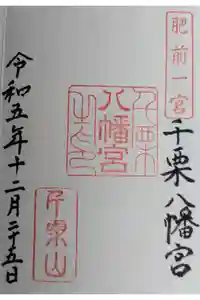 肥前一宮
千栗八幡宮
八幡宮
千栗山
令和五年十二月二十五日